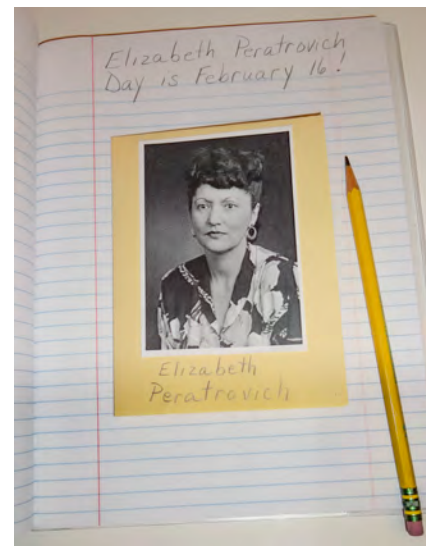 Elizabeth Peratrovich
Day is February 16!
Elizabeth
Peratrovich